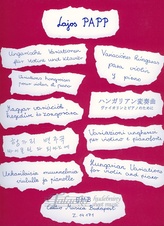 Lajos PAPP
Ungarische Variationen
für Violine und Klavier
Variaciones húngaras
para violín
y piano
Variations hongroises
pour violon et piano
ハンガリアン変奏曲
ヴァイオリンとピアノのために
Magyar variációk
hegedűre és zongorára
Variazioni ungheresi
per violino e pianoforte
Unkarilaisia muunnelmia
viululle ja pianolle
Hungarian Variations
for violin and piano
Editio Musica Budapest